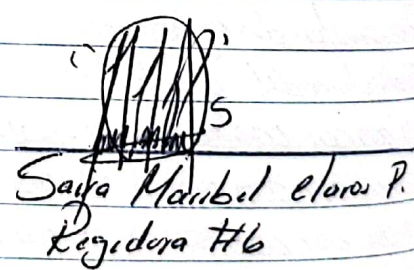 Sayra Maribel Claros P.
Regidora #6